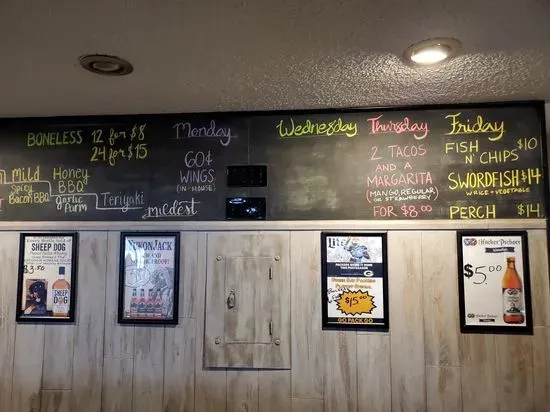 BONELESS 12 for $8
24 for $15
Mild Honey
BBQ
Spicy
Bacon BBQ
Garlic
Parm
Teriyaki
mildest
Monday
60¢
WINGS
(IN-HOUSE)
Wednesday
Thursday
2 TACOS
AND A
MARGARITA
(MANGO, REGULAR
OR STRAWBERRY)
FOR $8.00
Friday
FISH
N' CHIPS $10
SWORDFISH $14
W/ RICE + VEGETABLE
PERCH $14
SHEEP DOG
$3.50
SHEEP
DOG
YUKON JACK
GREEN BAY PACKERS
$15.00
GO PACK GO
Hacker-Pschorr
$5.00